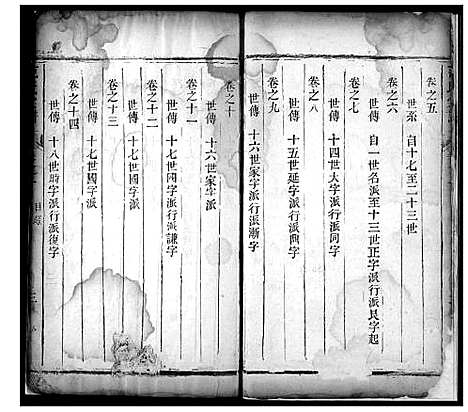 卷之五
世系 自十七至二十三世
卷之六
世傳 自一世名派至十三世正字派行派艮字起
卷之七
世傳 十四世大字派行派同字
卷之八
世傳 十五世延字派行派
卷之九
世傳 十六世家字派行派漸字
卷之十
世傳 十六世家字派
卷之十一
世傳 十七世國字派行派謙字
卷之十二
世傳 十七世國字派
卷之十三
世傳 十七世國字派
卷之十四
世傳 十八世時字派行派復字
目錄